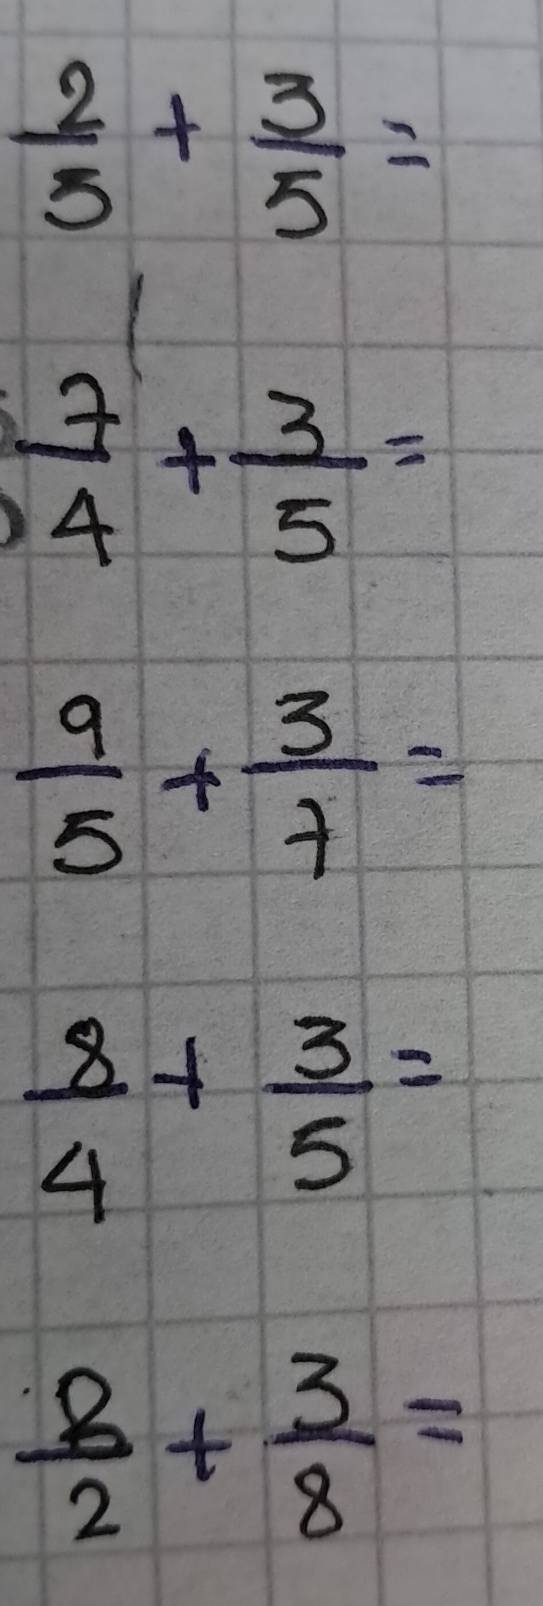 2/5 + 3/5 =
7/4 + 3/5 =
9/5 + 3/7 =
8/4 + 3/5 =
8/2 + 3/8 =